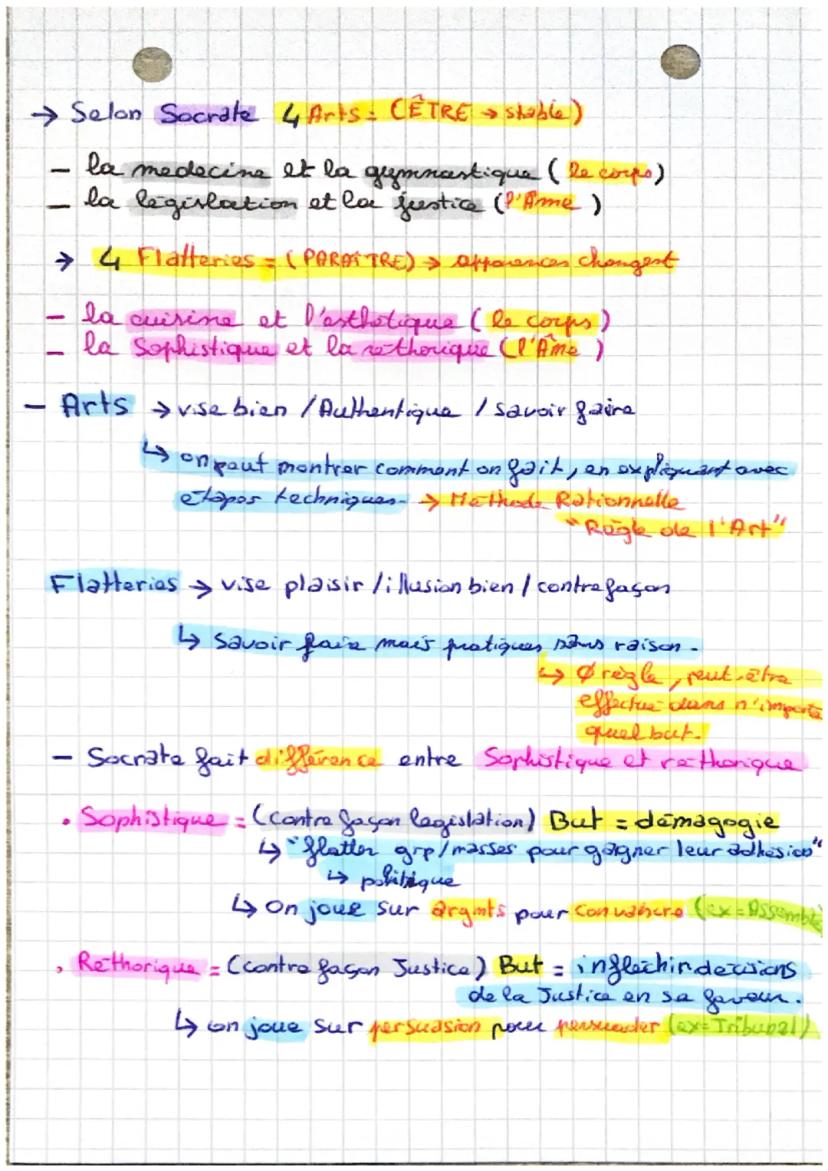 → Selon Socrate 4 Arts = (ÊTRE → stable)
- la médecine et la gymnastique (le corps)
- la législation et la justice (l'Âme)
→ 4 Flatteries = (PARAÎTRE) → apparences changent
- la cuisine et l'esthétique (le corps)
- la Sophistique et la réthorique (l'Âme)
- Arts → vise bien / Authentique / savoir faire
↳ on peut montrer comment on fait, en expliquant avec
étapes techniques. → Méthode Rationnelle
"Règle de l'Art"
Flatteries → vise plaisir / illusion bien / contrefaçon
↳ savoir faire mais pratiques sans raison.
↳ Ø règle, peut être
effectué dans n'importe
quel but.
- Socrate fait différence entre Sophistique et réthorique
• Sophistique = (contre façon legislation) But = démagogie
↳ "flatter grp/masses pour gagner leur adhésion"
↳ politique
↳ On joue sur argmts pour convaincre (ex = Assemblé
• Réthorique = (contre façon Justice) But = infléchir décisions
de la Justice en sa faveur.
↳ on joue sur persuasion pour persuader (ex = Tribunal)